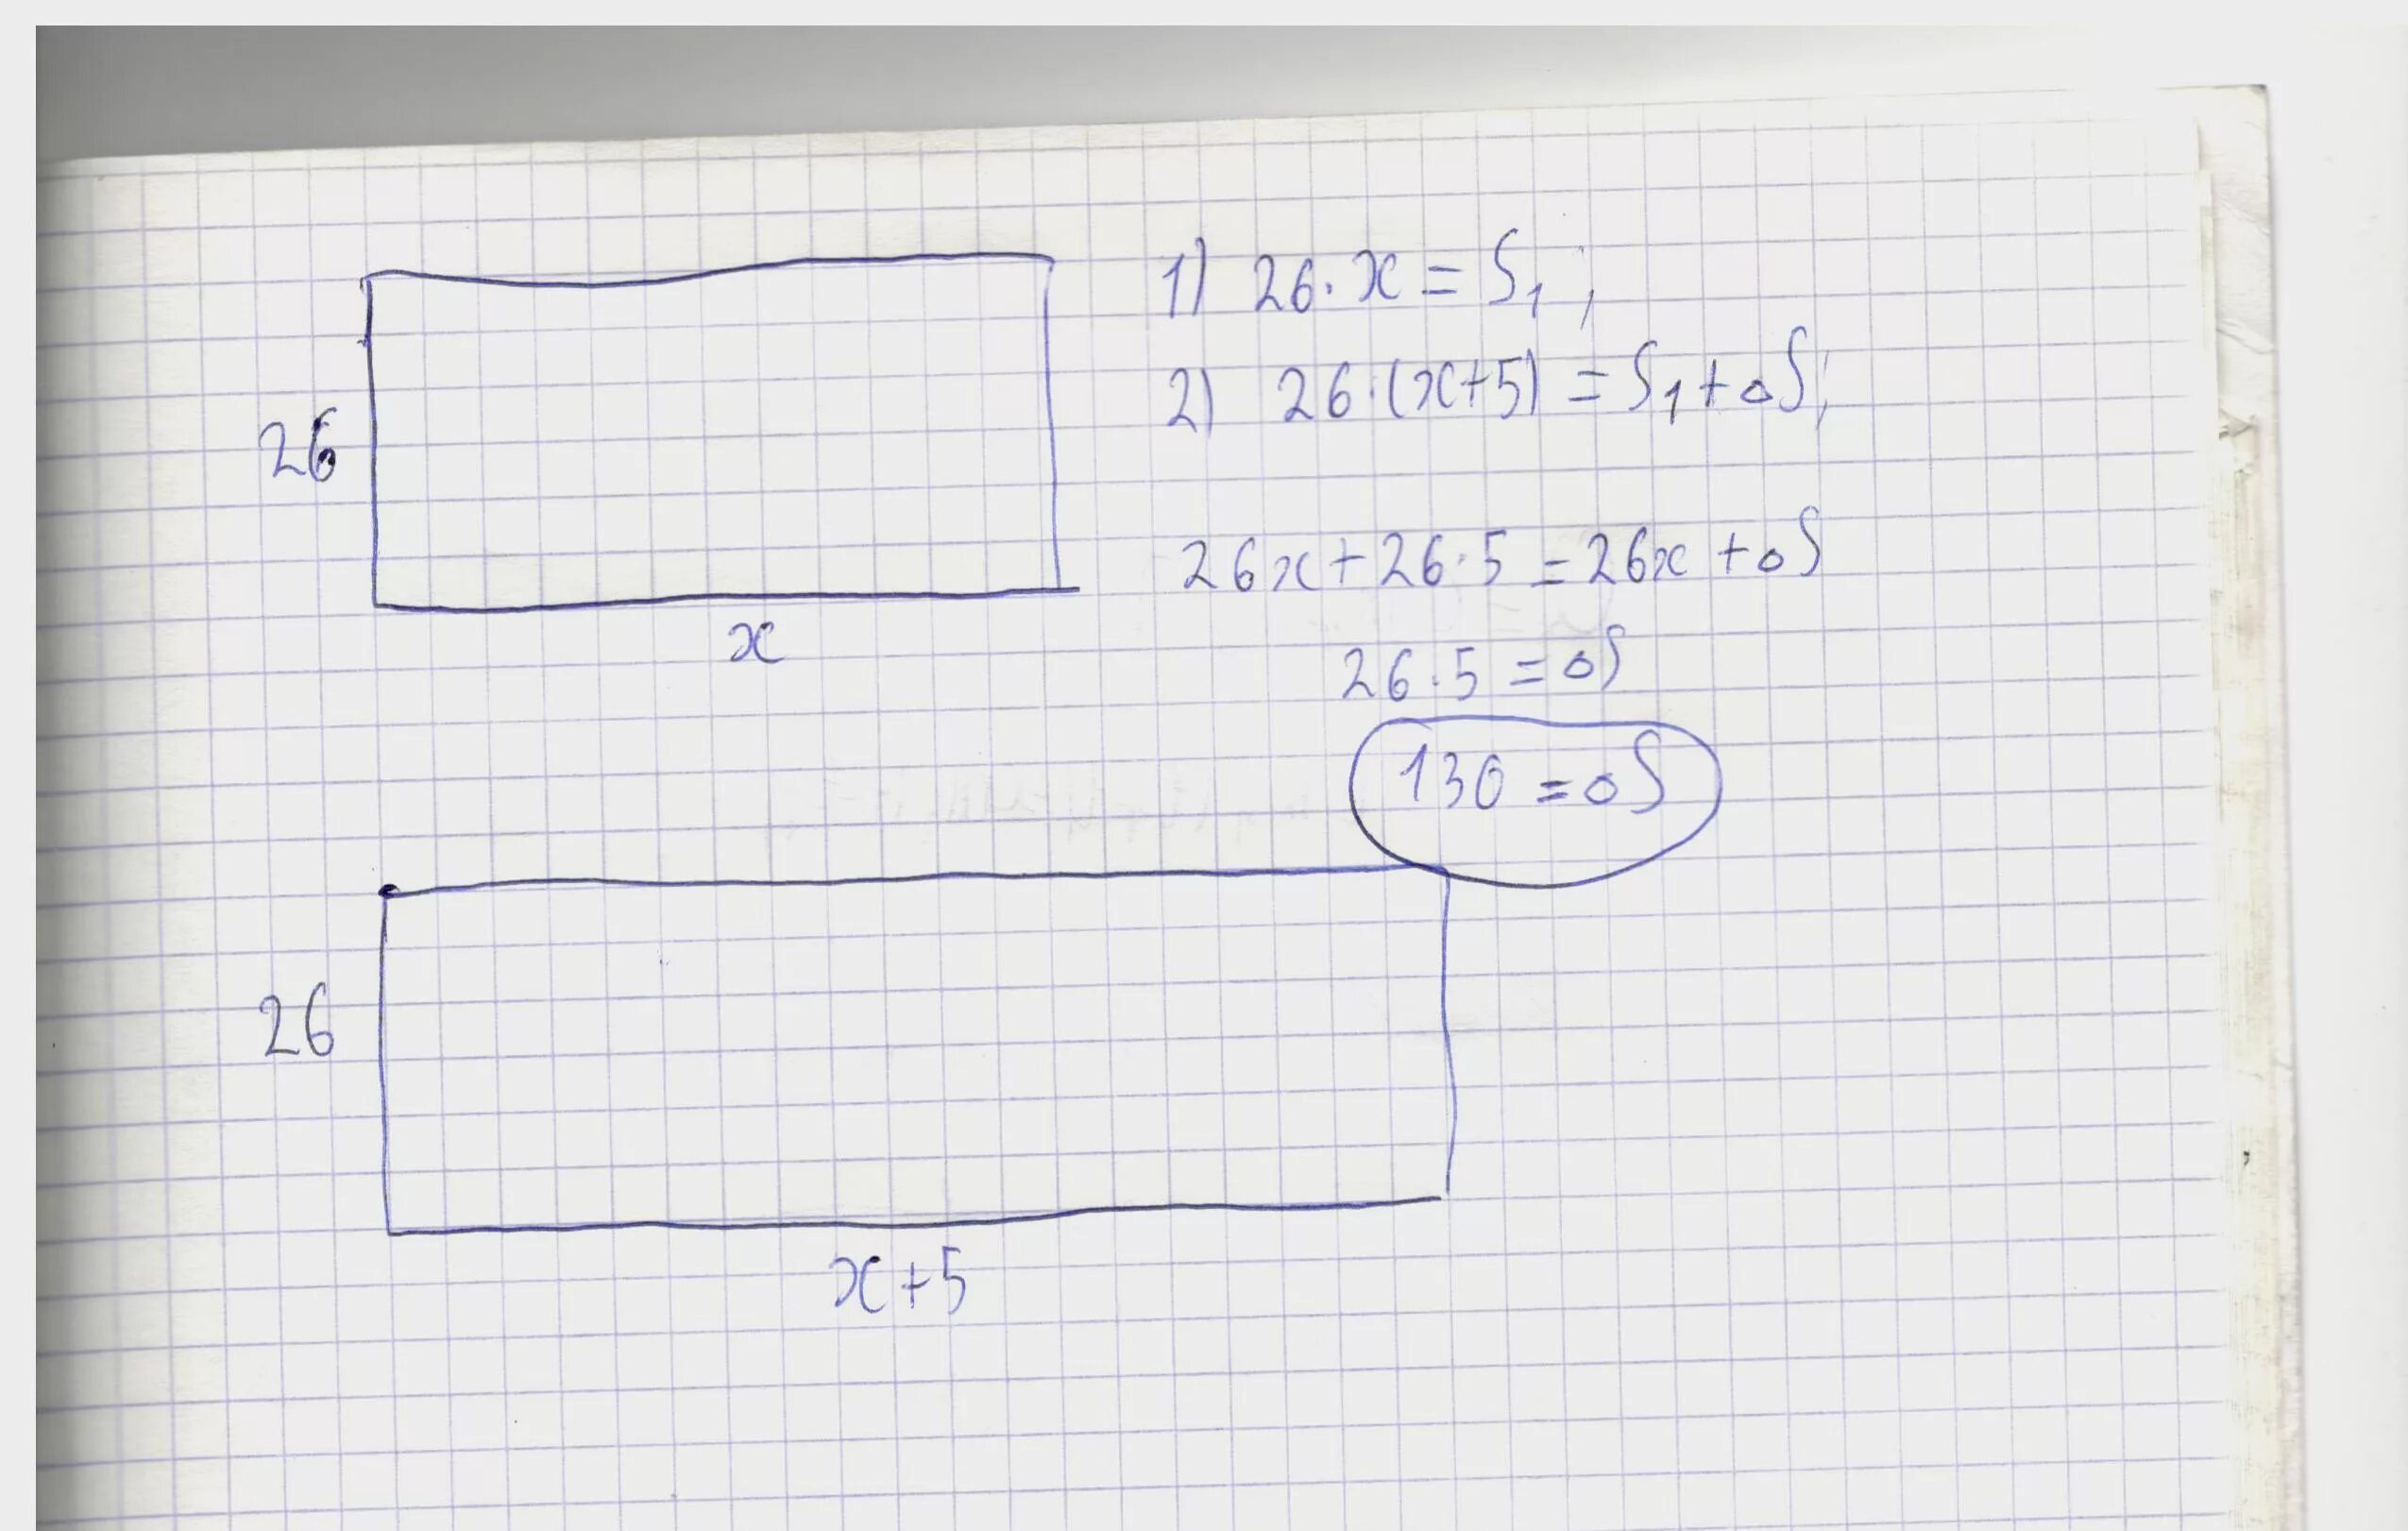 26
x
1) 26·x = S₁;
2) 26·(x+5) = S₁+ΔS;
26x+26·5 = 26x+ΔS
26·5 = ΔS
130 = ΔS
26
x+5